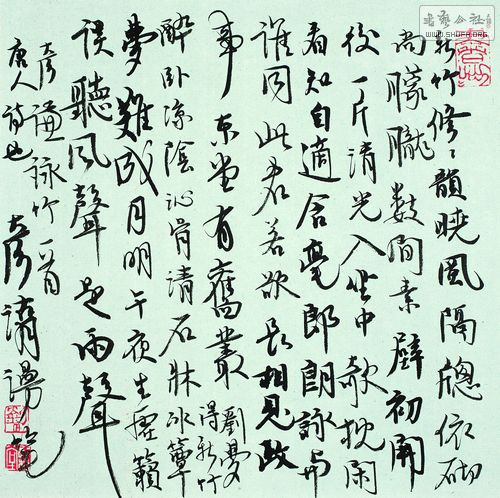 書藝公社
WWW.SHUFA.ORG
新竹修々韻曉風隔牕依砌
尚朦朧數間素壁初開
後一片清光入坐中欹枕閑
看知自適含毫郎朗詠與
誰同此君若欲長相見政
事東堂有舊叢
得新竹
醉臥涼陰沁骨清石牀冰簟
夢難成月明午夜生虛籟
誤聽風聲是雨聲
彥謙詠竹一首
唐人詩也